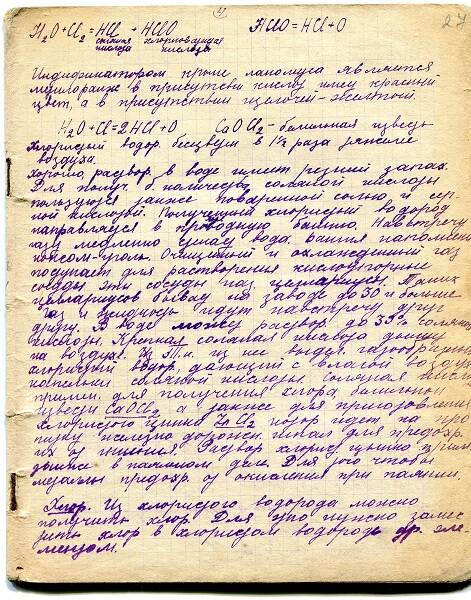 4
27
H2O+Cl2=HCl + HClO HClO=HCl+O
соляная хлорноватистая
кислота кислоты
Индификатором кроме лакмуса является
метилоранж в присутствии кислот имеет красный
цвет, а в присутствии щелочей - желтый.
H2O+Cl=2HCl+O CaOCl2 - белильная известь
Хлористый водор. бесцветн в 1 1/4 раза тяжелее
воздуха.
Хорошо раствор. в воде имеет резкий запах.
Для получ. б. количества соляной кислоты
пользуются также поваренной солью и сер-
ной кислотой. Полученный хлористый водород
направляется в приводную башню. Навстречу
газу медленно стекает вода. Башня наполнена
коксом-уголь. Очищенный и охлажденный газ
поступает для растворения кислотоупорные
сосуды эти сосуды наз. целлариусы. Таких
целлариусов бывает на заводе до 30 и больше
Газ и жидкость идут навстречу друг
другу. В воде может раствор. до 35% соляной
кислоты. Крепкая соляная кислота дымит
на воздухе. из нее выдел. газообразный
хлористый водор. дающий с влагой воздуха
капельки соляной кислоты. Соляная кислота
примен. для получения хлора, белильной
извести CaOCl2, а также для приготовления
Хлористого цинка ZnCl2 идет на про
питку железно дорожн. шпал для предохр.
их от гниения. Раствор хлорист. цинка прим.
также в паяльном деле. Для того чтобы
металлы предохр. от окисления при паянии.
Хлор. Из хлористого водорода можно
получить хлор. Для это нужно замес
тить хлор в хлористом водороде др. эле-
ментом.